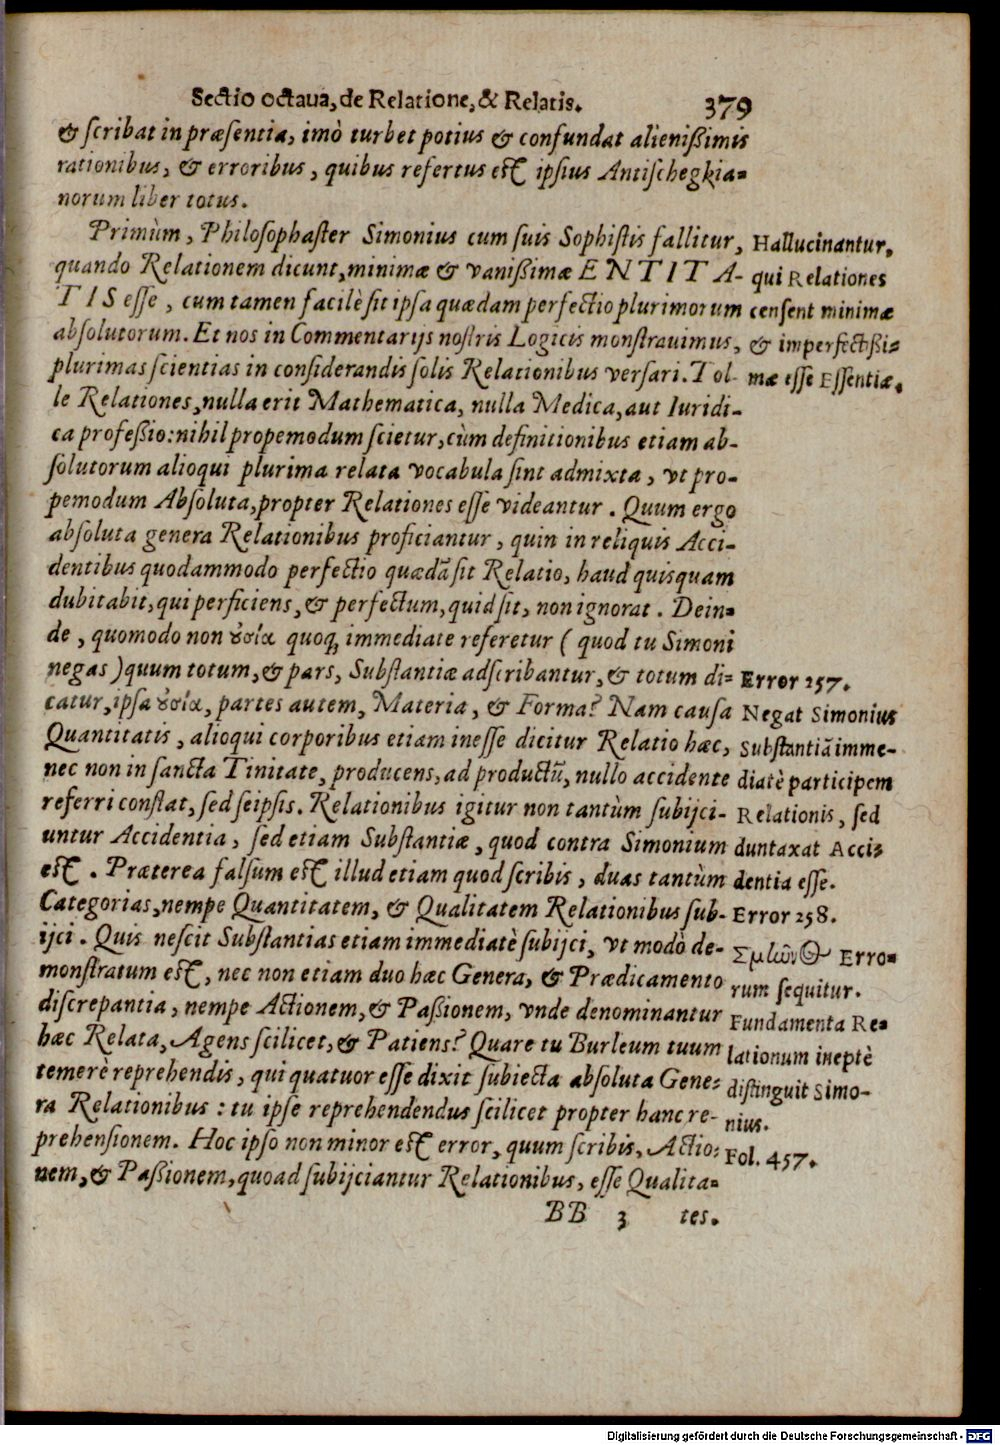 Sectio octaua, de Relatione, & Relatis. 379
& scribat in præsentia, imò turbet potius & confundat alienißimis
rationibus, & erroribus, quibus refertus est ipsius Antischegkia-
norum liber totus.
Primùm, Philosophaster Simonius cum suis Sophistis fallitur,
quando Relationem dicunt, minimæ & vanißimæ ENTITA-
TIS esse, cum tamen facilè sit ipsa quædam perfectio plurimorum
absolutorum. Et nos in Commentarijs nostris Logicis monstrauimus,
plurimas scientias in considerandis solis Relationibus versari. Tol-
le Relationes, nulla erit Mathematica, nulla Medica, aut Iuridi-
ca profeßio: nihil propemodum scietur, cùm definitionibus etiam ab-
solutorum alioqui plurima relata vocabula sint admixta, vt pro-
pemodum Absoluta, propter Relationes esse videantur. Quum ergo
absoluta genera Relationibus proficiantur, quin in reliquis Acci-
dentibus quodammodo perfectio quædã sit Relatio, haud quisquam
dubitabit, qui perficiens, & perfectum, quid sit, non ignorat. Dein-
de, quomodo non ȣσία quoq; immediate referetur (quod tu Simoni
negas) quum totum, & pars, Substantiæ adscribantur, & totum di-
catur, ipsa ȣσία, partes autem, Materia, & Forma? Nam causa
Quantitatis, alioqui corporibus etiam inesse dicitur Relatio hæc,
nec non in sancta Tinitate, producens, ad productũ, nullo accidente
referri constat, sed seipsis. Relationibus igitur non tantùm subijci-
untur Accidentia, sed etiam Substantiæ, quod contra Simonium
est. Præterea falsum est illud etiam quod scribis, duas tantùm
Categorias, nempe Quantitatem, & Qualitatem Relationibus sub-
ijci. Quis nescit Substantias etiam immediatè subijci, vt modò de-
monstratum est, nec non etiam duo hæc Genera, & Prædicamento
discrepantia, nempe Actionem, & Paßionem, vnde denominantur
hæc Relata, Agens scilicet, & Patiens? Quare tu Burleum tuum
temerè reprehendis, qui quatuor esse dixit subiecta absoluta Gene-
ra Relationibus: tu ipse reprehendendus scilicet propter hanc re-
prehensionem. Hoc ipso non minor est error, quum scribis, Actio-
nem, & Paßionem, quoad subijciantur Relationibus, esse Qualita-
BB 3 tes.
Hallucinantur,
qui Relationes
censent minimæ
& imperfectißi-
mæ esse Essentiæ.
Error 257.
Negat Simonius
Substantiã imme-
diatè participem
Relationis, sed
duntaxat Acci-
dentia esse.
Error 258.
Erro-
rum sequitur.
Fundamenta Re-
lationum ineptè
distinguit Simo-
nius.
Fol. 457.
Digitalisierung gefördert durch die Deutsche Forschungsgemeinschaft - DFG